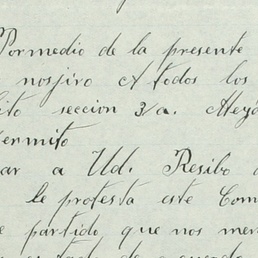 Por medio de la presente
nosjiro A todos los
ito seccion 3/a. Aleja
ermito
ar a Ud. Resibo
le protesta este Com
e partido que nos mer